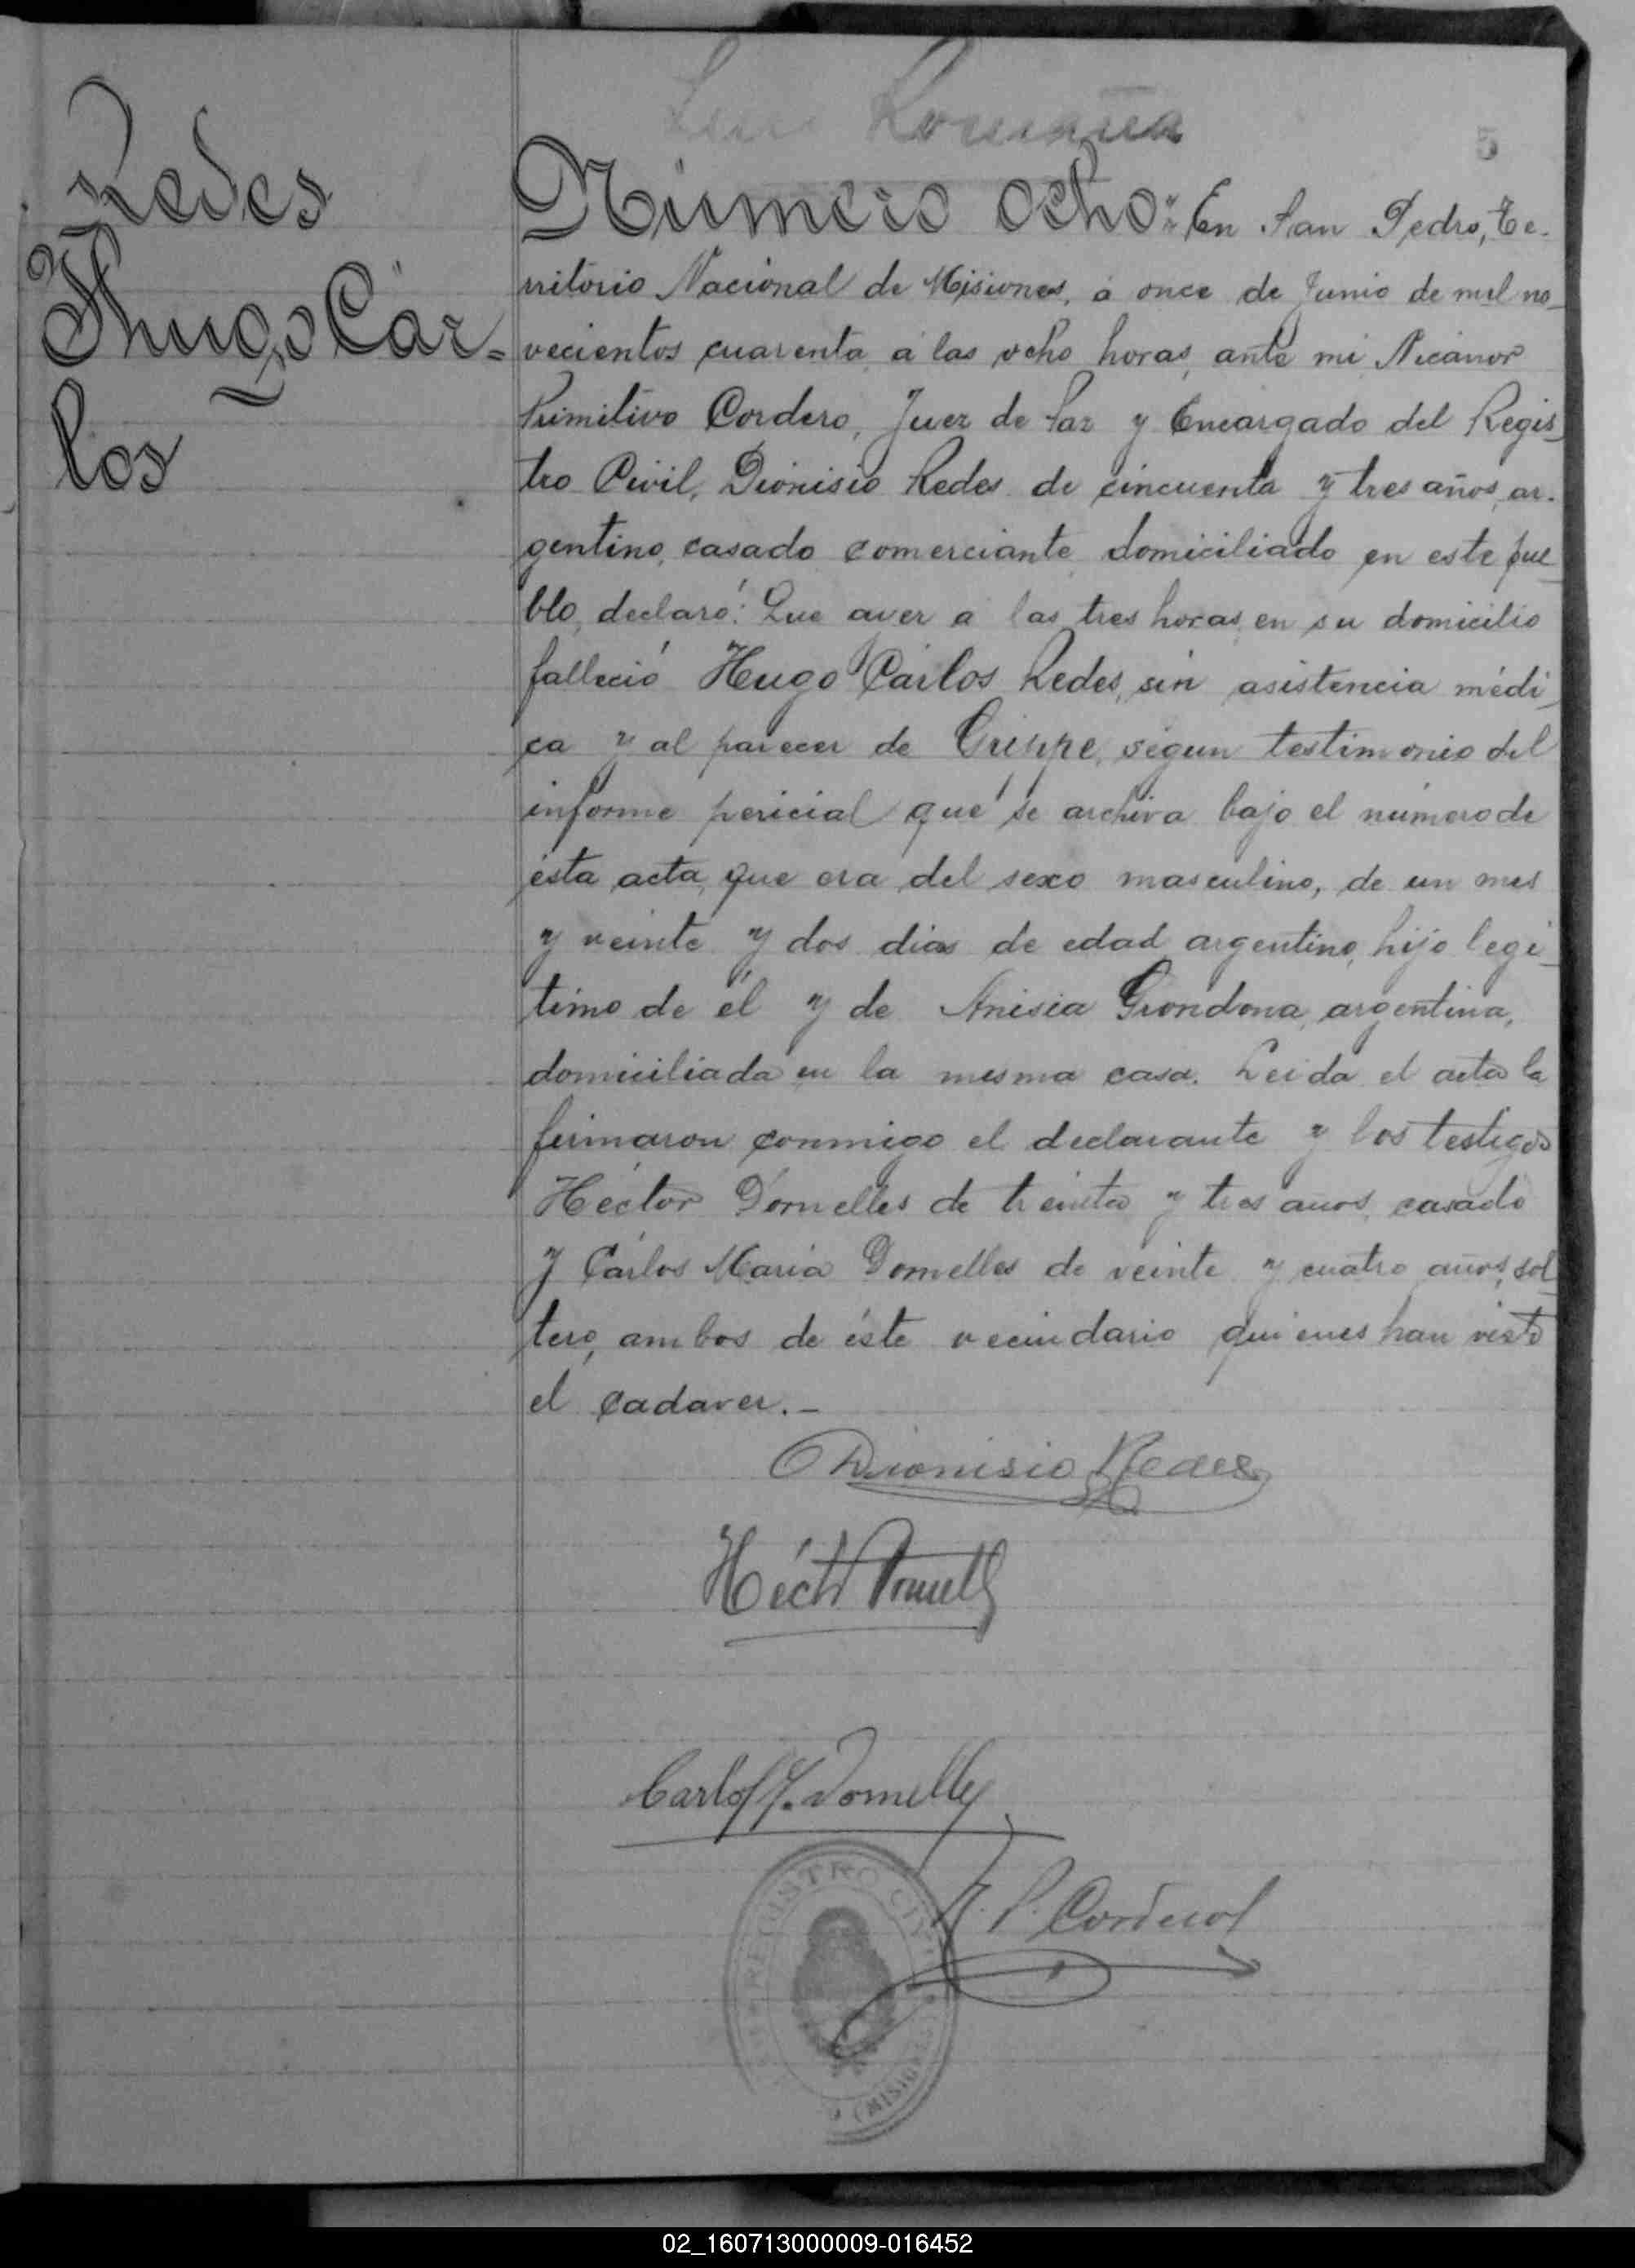 Redes
Hugo Car=
los
5
Número ocho: En San Pedro, Te-
rritorio Nacional de Misiones, á once de Junio de mil no-
vecientos cuarenta á las ocho horas, ante mi Nicanor
Primitivo Cordero, Juez de Paz y Encargado del Regis-
tro Civil, Dionisio Redes de cincuenta y tres años, ar-
gentino, casado comerciante domiciliado en este pue-
blo, declaró: Que ayer a las tres horas, en su domicilio
falleció Hugo Carlos Redes, sin asistencia médi-
ca y al parecer de Grippe, según testimonio del
informe pericial que se archiva bajo el número de
ésta acta, que era del sexo masculino, de un mes
y veinte y dos dias de edad argentino, hijo legi-
timo de él y de Anisia Grondona, argentina,
domiciliada en la misma casa. Leida el acta la
firmaron conmigo el declarante y los testigos
Héctor Dornelles de treinta y tres años, casado
y Cárlos María Dornelles de veinte y cuatro años, sol-
tero, ambos de éste vecindario quienes han visto
el cadaver.-
Dionisio Redes
Héctor Dornelles
Carlos M. Dornelles
N. P. Cordero
REGISTRO CIVIL
(MISIONES)
02_160713000009-016452